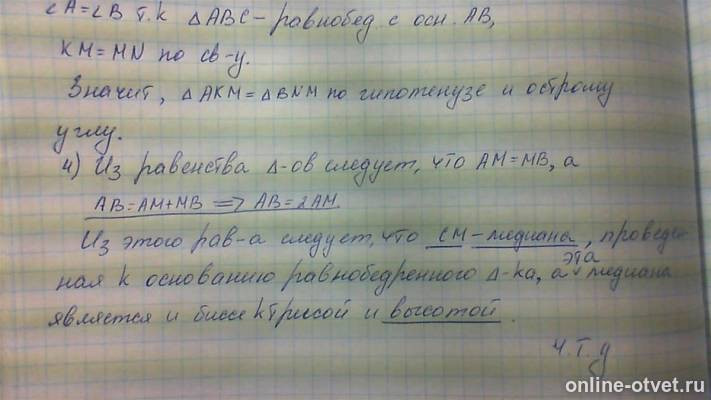 ∠A=∠B т.к △ABC – равнобед. с осн. AB,
KM=MN по св-у.
Значит, △AKM=△BNM по гипотенузе и острому
углу.
4) Из равенства △-ов следует, что AM=MB, а
AB=AM+MB ⟹ AB=2AM.
Из этого рав-а следует, что CM – медиана, проведен-
ная к основанию равнобедренного △-ка, а эта медиана
является и биссектриссой и высотой.
Ч.Т.Д
online-otvet.ru